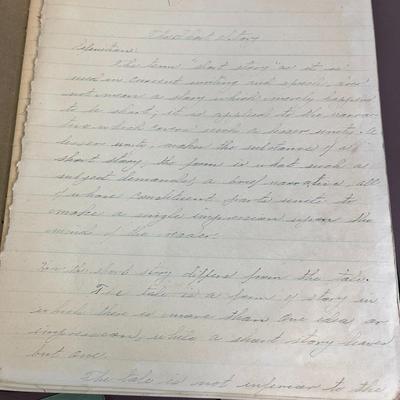 The Short Story
Definition:
The term "short story" as it is
used in current writing and speech does
not mean a story which merely happens
to be short, it is applied to the narra-
tive which covers such a lesser unity. A
lesser unity makes the substance of a
short story, the form is what such a
subject demands, a brief narrative all
of whose constituent parts unite to
make a single impression upon the
mind of the reader.
How the short story differs from the tale.
The tale is a form of story in
which there is more than one idea or
impression, while a short story leaves
but one.
The tale is not inferior to the